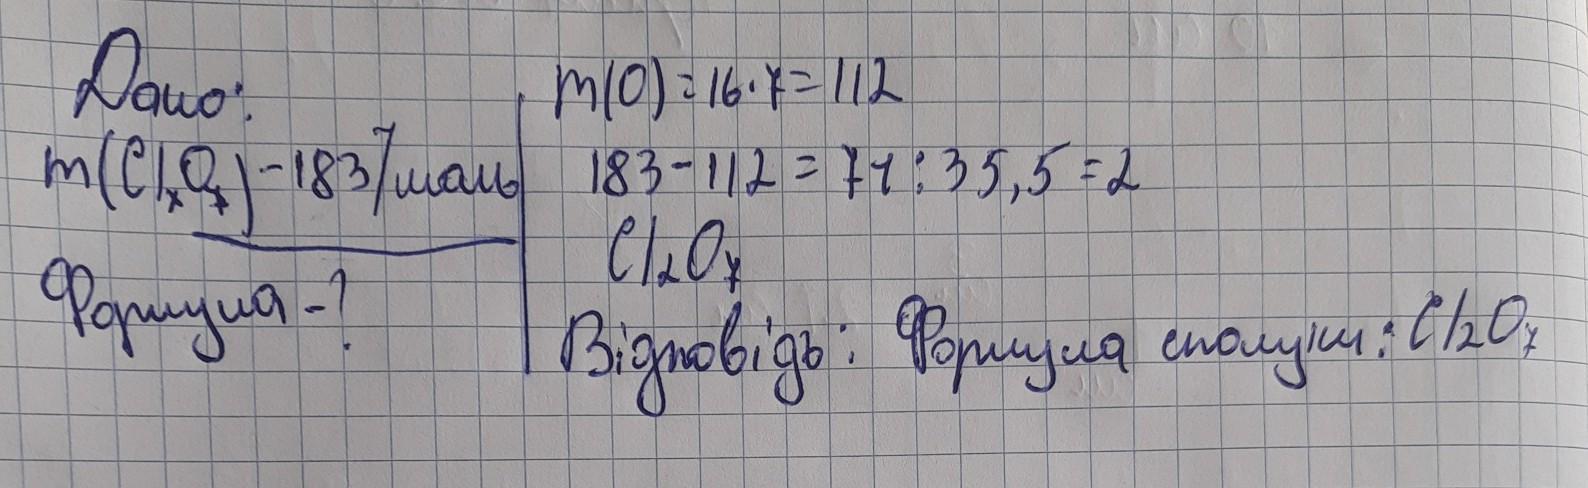 Дано:
m(ClₓO₇) - 183 г/моль
Формула - ?
m(O) = 16 · 7 = 112
183 - 112 = 71 : 35,5 = 2
Cl₂O₇
Відповідь: Формула сполуки: Cl₂O₇